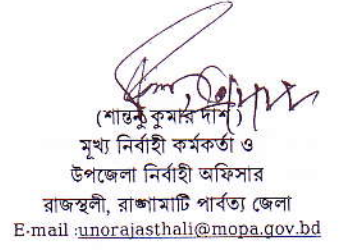 (শান্তনু কুমার দাশ)
মূখ্য নির্বাহী কর্মকর্তা ও
উপজেলা নির্বাহী অফিসার
রাজস্থলী, রাঙ্গামাটি পার্বত্য জেলা
E-mail :unorajasthali@mopa.gov.bd